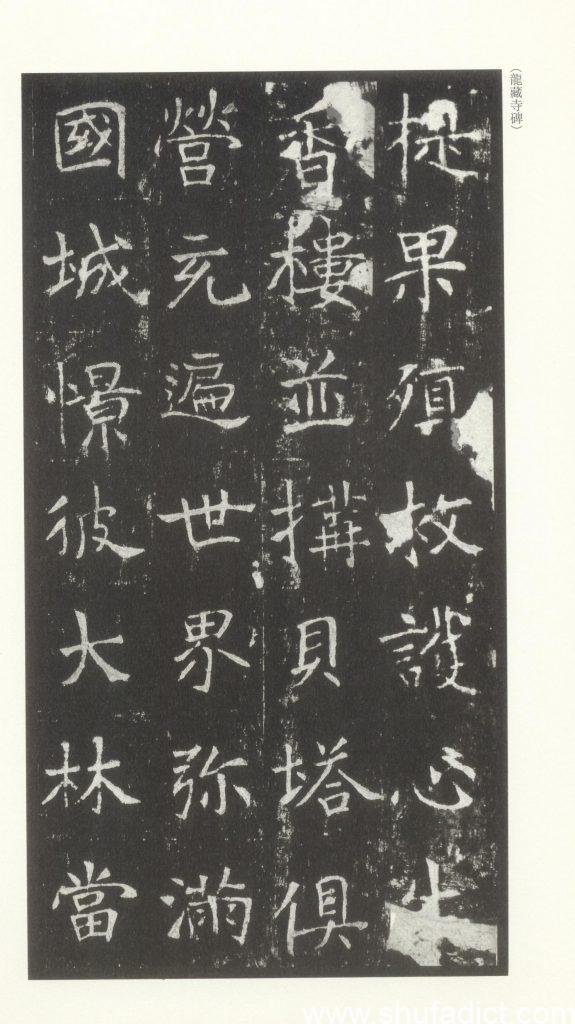 (龍藏寺碑)
提果殖救護心
香樓並搆貝塔俱
營充遍世界弥滿
國城憬彼大林當
www.shufadict.com